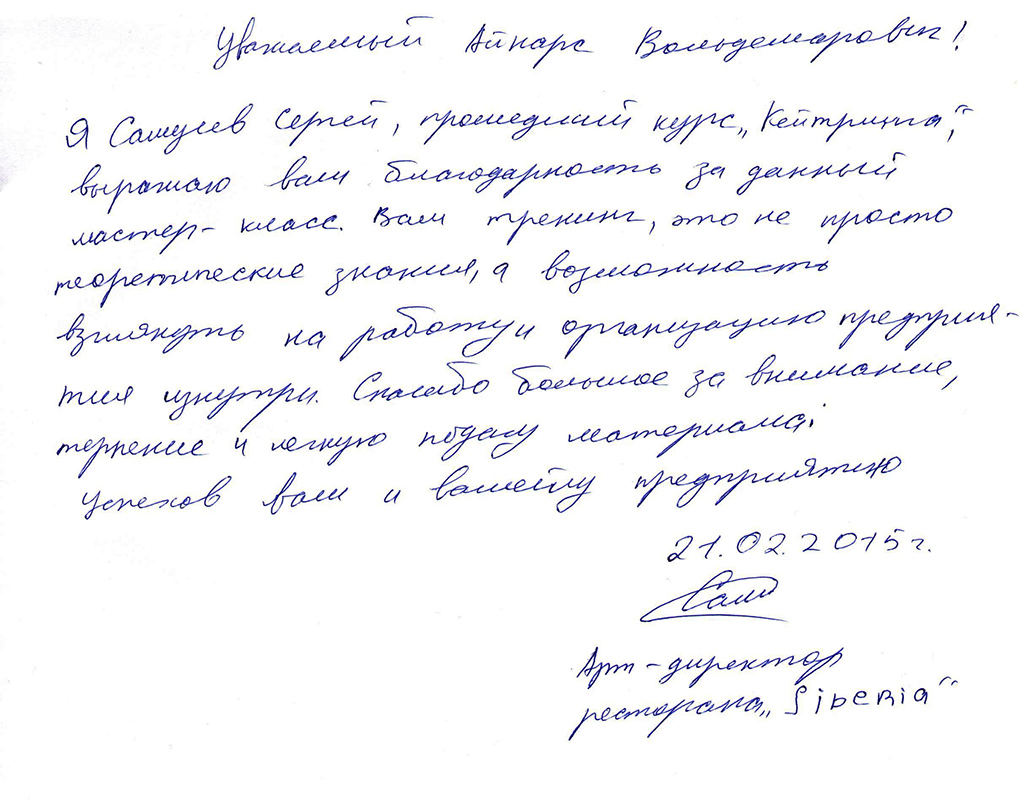 Уважаемый Айнарс Вольдемарович!
Я Самусев Сергей, прошедший курс „Кейтринга“,
выражаю вам благодарность за данный
мастер-класс. Вам тренинг, это не просто
теоретические знания, а возможность
взглянуть на работу и организацию предприя-
тия изнутри. Спасибо большое за внимание,
террение и легкую подачу материала.
Успехов вам и вашему предприятию
21.02.2015г.
Арт-директор
ресторана „Siberia“